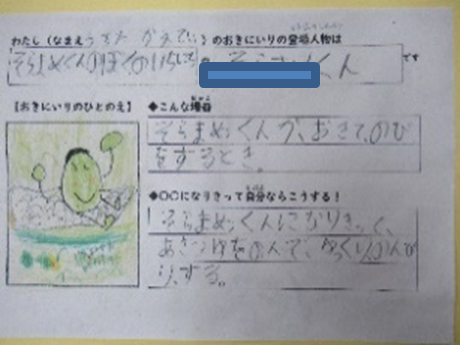 わたし（なまえ　　　　　）のおきにいりの登場人物は
そらまめくんのぼくのいちにち　そら　　くん　です
【おきにいりのひとのえ】
◆こんな場面
そらまめくんが、おきて、のび
をするとき。
◆○○になりきって自分ならこうする！
そらまめくんになりきって、
あさつゆをのんで、ゆっくりのんび
りする。